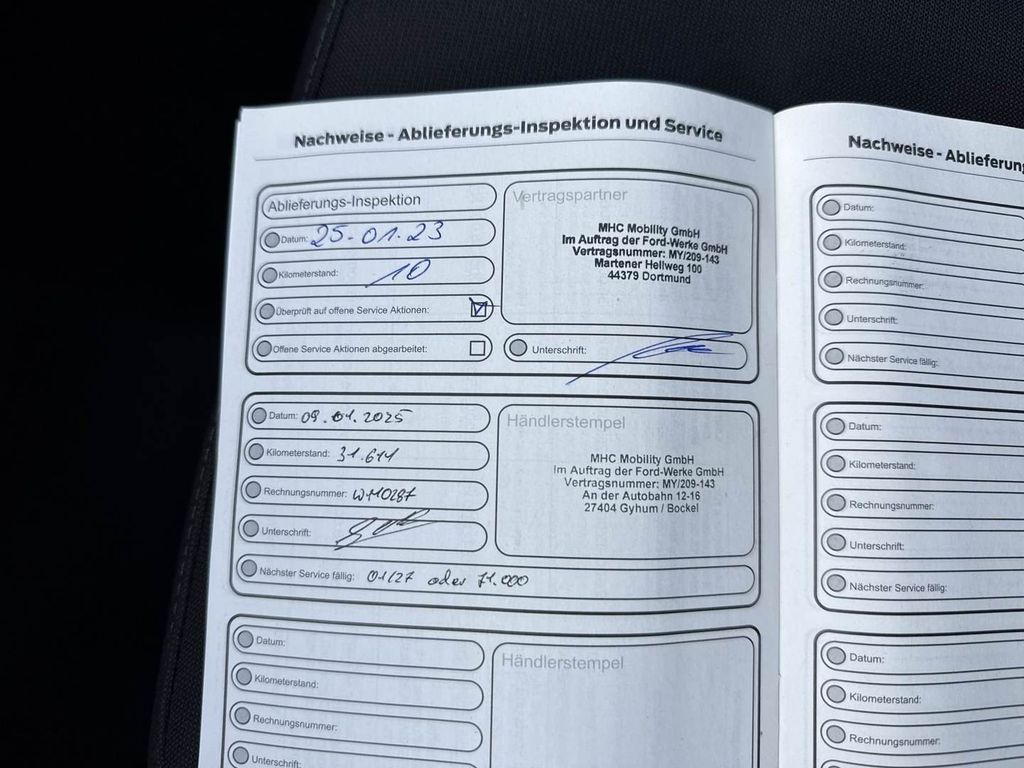 Nachweise - Ablieferungs-Inspektion und Service
Ablieferungs-Inspektion
Datum: 25-01.23
Kilometerstand: 10
Überprüft auf offene Service Aktionen:
Offene Service Aktionen abgearbeitet:
Vertragspartner
MHC Mobility GmbH
Im Auftrag der Ford-Werke GmbH
Vertragsnummer: MY/209-143
Martener Hellweg 100
44379 Dortmund
Unterschrift:
Datum: 09.01.2025
Kilometerstand: 31.611
Rechnungsnummer: W110287
Unterschrift:
Nächster Service fällig: 01/27 oder 71.000
Händlerstempel
MHC Mobility GmbH
Im Auftrag der Ford-Werke GmbH
Vertragsnummer: MY/209-143
An der Autobahn 12-16
27404 Gyhum / Bockel
Datum:
Kilometerstand:
Rechnungsnummer:
Unterschrift:
Händlerstempel
Nachweise - Ablieferung
Datum:
Kilometerstand:
Rechnungsnummer:
Unterschrift:
Nächster Service fällig:
Datum:
Kilometerstand:
Rechnungsnummer:
Unterschrift:
Nächster Service fällig:
Datum:
Kilometerstand:
Rechnungsnummer: